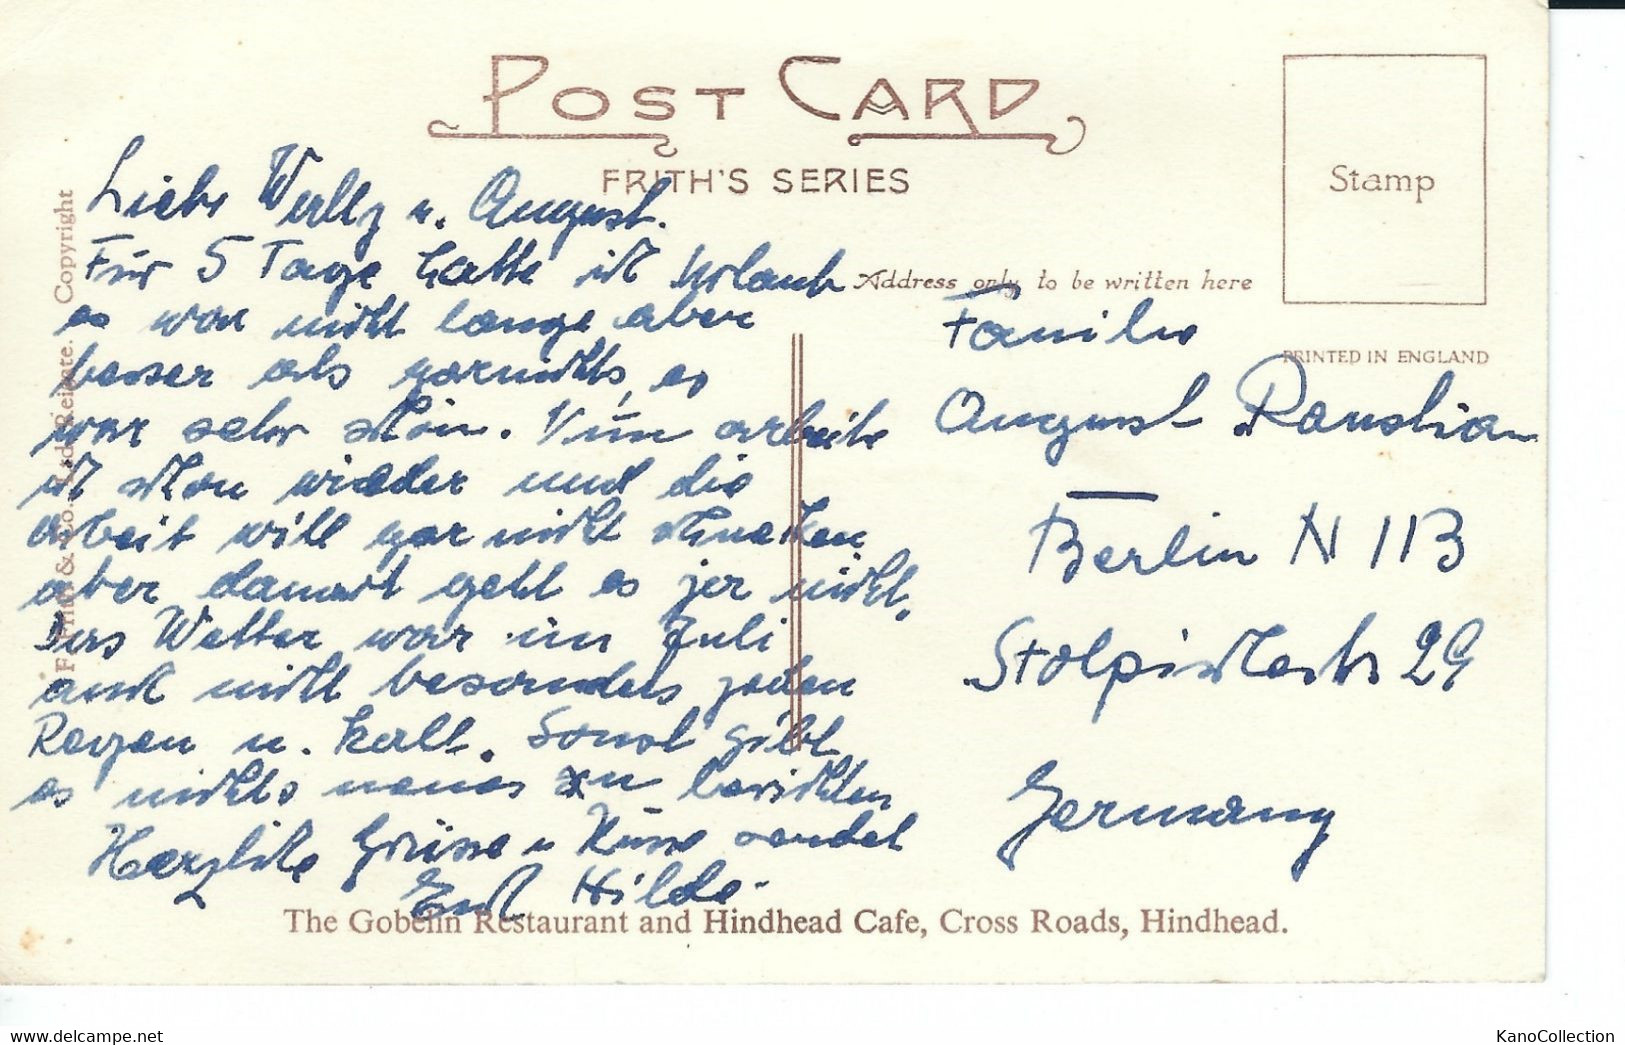 POST CARD
FRITH'S SERIES
Stamp
Address only to be written here
PRINTED IN ENGLAND
Liebe Wally u. August.
Für 5 Tage hatte ich Urlaub
es war nicht lange aber
besser als garnichts, es
war sehr schön. Nun arbeite
ich schon wieder und die
Arbeit will gar nicht schmecken
aber danach geht es ja nicht.
Das Wetter war im Juli
auch nicht besonders jeden
Regen u. kalt. Sonst gibt
es nichts neues zu berichten
Herzliche Grüsse u Küsse sendet
Euch Hilde
Familie
August
Berlin N 113
29
Germany
The Gobelin Restaurant and Hindhead Cafe, Cross Roads, Hindhead.
Co. Ltd. Reigate. Copyright
www.delcampe.net
KanoCollection